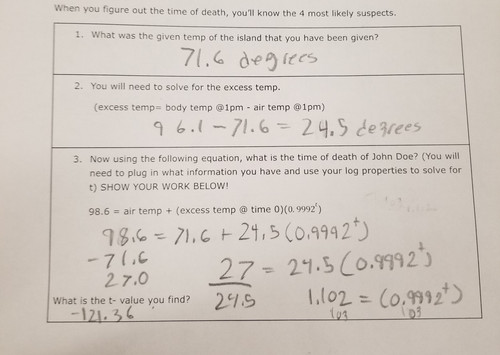 When you figure out the time of death, you'll know the 4 most likely suspects.
1. What was the given temp of the island that you have been given?
71.6 degrees
2. You will need to solve for the excess temp.
(excess temp= body temp @1pm - air temp @1pm)
96.1-71.6 = 24.5 degrees
3. Now using the following equation, what is the time of death of John Doe? (You will
need to plug in what information you have and use your log properties to solve for
t) SHOW YOUR WORK BELOW!
98.6 = air temp + (excess temp @ time 0)(0.9992^t)
98.6 = 71.6 + 24.5 (0.9992^t)
-71.6
27.0
27 = 24.5 (0.9992^t)
24.5
1.102 = (0.9992^t)
log log
What is the t- value you find?
-121.36